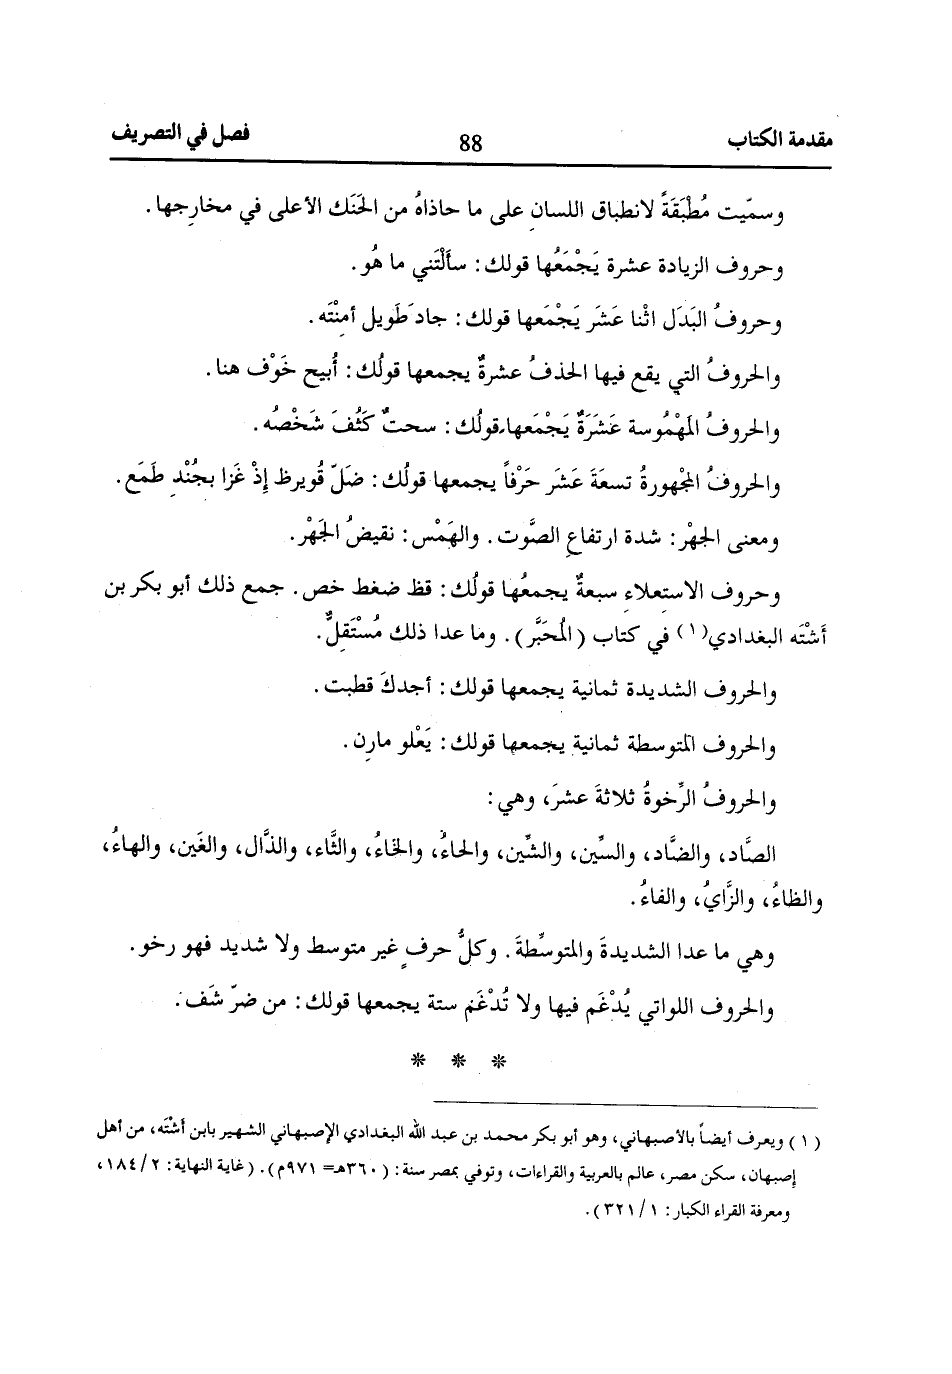 مقدمة الكتاب 88 فصل في التصريف
وسمّيت مُطْبَقَةً لانطباق اللسانِ على ما حاذاهُ من الحَنَك الأعلى في مخارِجها.
وحروف الزيادة عشرة يَجْمَعُها قولك: سأَلْتَني ما هُو.
وحروفُ البَدَل اثْنا عَشَر يَجْمَعها قولك: جادَ طَويل أمِنْتَه.
والحروفُ التي يقع فيها الحذفُ عشرةٌ يجمعها قولُك: أُبيح خَوْف هنا.
والحروفُ المَهْمُوسة عَشَرَةٌ يَجْمَعها قولُك: سحتٌ كَثُفَ شَخْصُه.
والحروفُ المجْهورةُ تسعَةَ عَشَر حَرْفاً يجمعها قولُك: ضَلّ قُويرظ إذْ غَزا بجُنْدِ طَمَع.
ومعنى الجهْر: شدة ارتفاعِ الصَّوت. والهَمْس: نقيضُ الجَهْر.
وحروف الاستعلاءِ سبعةٌ يجمعُها قولُك: قظ ضغط خص. جمع ذلك أبو بكر بن
أشْتَه البغدادي(١) في كتاب (المُحَبَّر). وما عدا ذلك مُسْتَفِلٌ.
والحروف الشديدة ثمانية يجمعها قولك: أجدكَ قطبت.
والحروف المتوسطة ثمانية يجمعها قولك: يَعْلو مارن.
والحروفُ الرِّخوةُ ثلاثةَ عشرَ، وهي:
الصَّاد، والضَّاد، والسِّين، والشِّين، والحاءُ، والخاءُ، والثَّاء، والذَّال، والغَين، والهاءُ،
والظاءُ، والزَّايُ، والفاءُ.
وهي ما عدا الشديدةَ والمتوسِّطةَ. وكلُّ حرفٍ غير متوسط ولا شديد فهو رخو.
والحروف اللواتي يُدْغَم فيها ولا تُدْغَم ستة يجمعها قولك: من ضرّ شَفَ.
* * *
(١) ويعرف أيضاً بالأصبهاني، وهو أبو بكر محمد بن عبد الله البغدادي الإصبهاني الشهير بابن أشْتَه، من أهل
إصبهان، سكن مصر، عالم بالعربية والقراءات، وتوفي بمصر سنة: (٣٦٠هـ= ٩٧١م). (غاية النهاية: ١٨٤/٢،
ومعرفة القراء الكبار: ٣٢١/١).